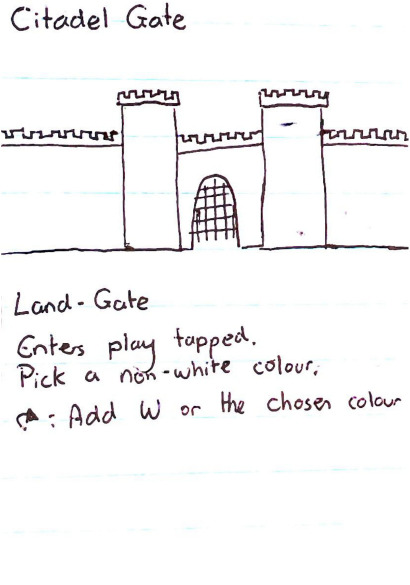 Citadel Gate
Land - Gate
Enters play tapped.
Pick a non-white colour.
: Add W or the chosen colour